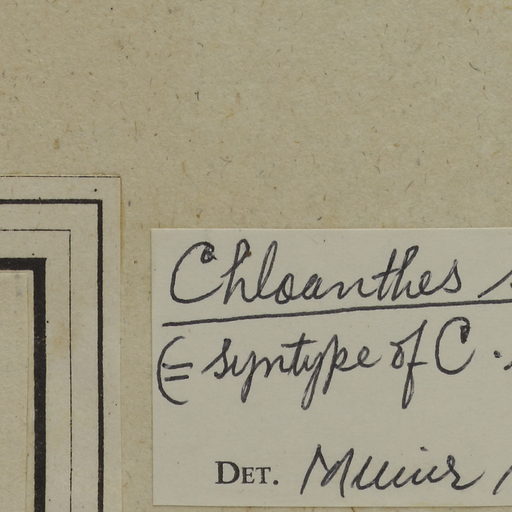 Chloanthes
(= syntype of C.
DET. Munir